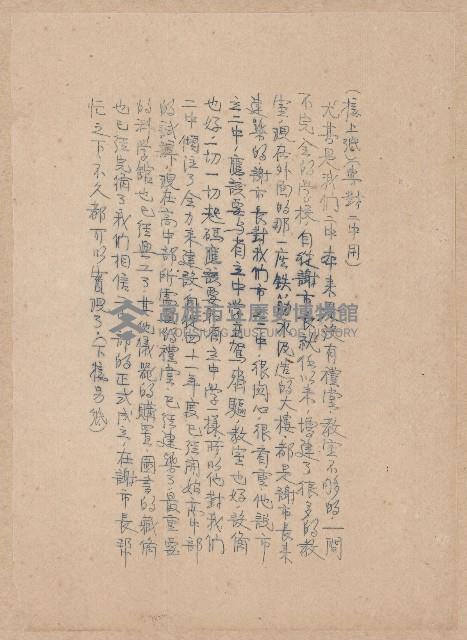 (接上張)(專對二中用)
尤其是我們二中本來是沒有禮堂教室不夠的一間
不完全的學校自從謝市長就任以來,增建了很多的教
室,現在外面的那一座鉄筋水泥造的大樓都是謝市長來
建築的謝市長對我們市二中很関心,很看重他說市
立二中應該要与省立中學並駕齊驅教室也好,設備
也好,一切一切起碼應該要与省立中學一樣所以他對我們
二中傾注了全力來建設自四十一年度已經開始高中部
的試辦現在高中部所需的禮堂已經建築了最重要
的科學館也已經興工了其他儀器的購置,圖書的藏備
也已經完備了我們相信高中部的正式成立,在謝市長帮
忙之下不久都可以實現了(下接另紙)
高雄市立歷史博物館
KAOHSIUNG MUSEUM OF HISTORY